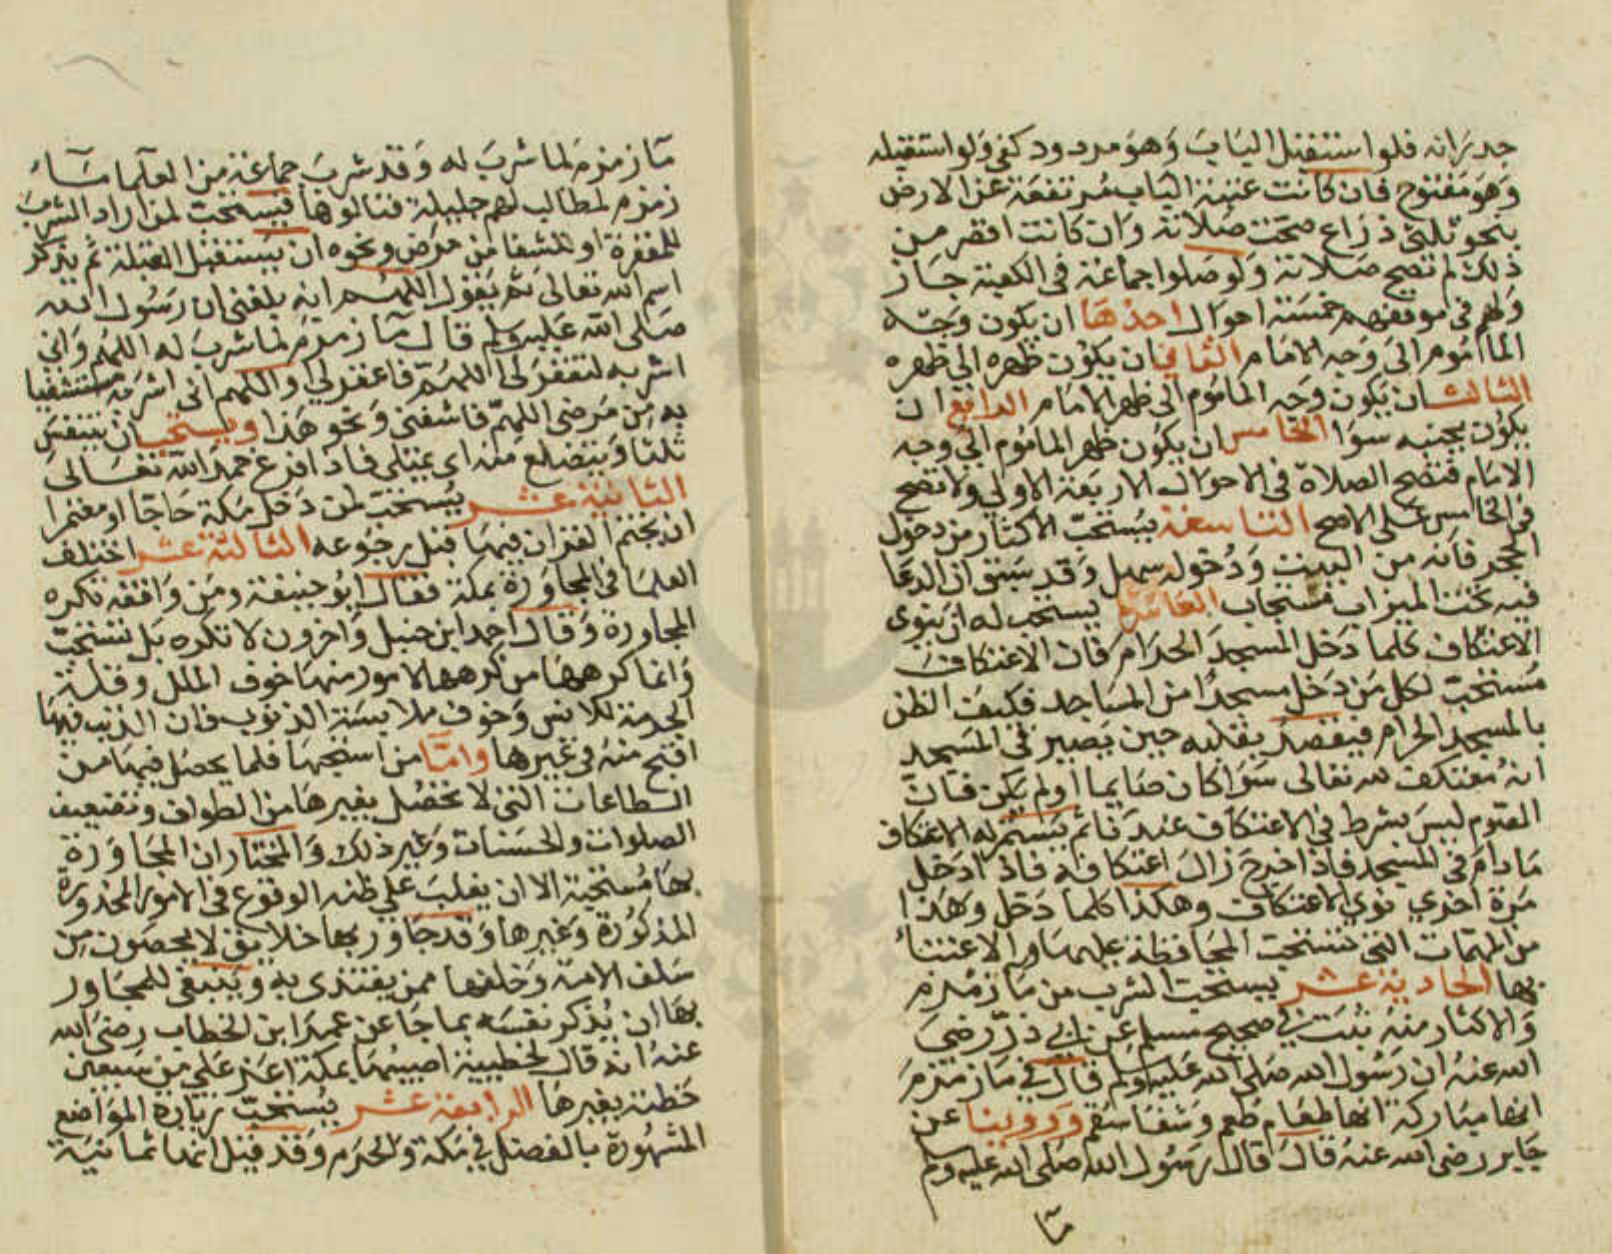 جدرانه فلو استقبل الباب وهو مردود كفى ولو استقبله
وهو مفتوح فان كانت عتبة الباب مرتفعة عن الارض
بنحو ثلثي ذراع صحت صلاته وان كانت اقصر من
ذلك لم تصح صلاته ولو صلوا جماعة في الكعبة جاز
ولهم في موقفهم خمسة احوال احدها ان يكون وجه
الماموم الى وجه الامام الثاني ان يكون ظهره الى ظهره
الثالث ان يكون وجه الماموم الى ظهر الامام الرابع ان
يكون بجنبه سوا الخامس ان يكون ظهر الماموم الى وجه
الامام فتصح الصلاة في الاحوال الاربعة الاولي ولا تصح
في الخامس على الاصح التاسعة يستحب الاكثار من دخول
الحجر فانه من البيت ودخوله سهل وقد سبق ان الدعا
فيه تحت الميزاب مستجاب العاشرة يستحب له ان ينوي
الاعتكاف كلما دخل المسجد الحرام فان الاعتكاف
مستحب لكل من دخل مسجدا من المساجد فكيف الظن
بالمسجد الحرام فيقصد بقلبه حين يصير في المسجد
انه معتكف لله تعالى سوا كان صايما او لم يكن فان
الصوم ليس بشرط في الاعتكاف عندنا ثم يستمر له الاعتكاف
ما دام في المسجد فاذا خرج زال اعتكافه فاذا دخل
مرة اخرى نوى الاعتكاف وهكذا كلما دخل وهذا
من المهمات التي تستحب المحافظة عليها والاعتناء
بها الحادية عشر يستحب الشرب من ما زمزم
والاكثار منه ثبت في صحيح مسلم عن ابي ذر رضي
الله عنه ان رسول الله صلى الله عليه وسلم قال في ما زمزم
انها مباركة انها طعام طعم وشفا سقم وروينا عن
جابر رضى الله عنه قال قال رسول الله صلى الله عليه وسلم
ما
ما زمزم لما شرب له وقد شرب جماعة من العلما ماء
زمزم لمطالب لهم جليلة فنالوها فيستحب لمن اراد الشرب
للمغفرة او للشفا من مرض ونحوه ان يستقبل القبلة ثم يذكر
اسم الله تعالى ثم يقول اللهم انه بلغني ان رسول الله
صلى الله عليه وسلم قال ما زمزم لما شرب له اللهم واني
اشربه لتغفر لي اللهم فاغفر لي واللهم اني اشربه مستشفيا
به من مرضي اللهم فاشفني ونحو هذا ويستحب ان يتنفس
ثلثا ويتضلع منه اي يمتلي فاذا فرغ حمد الله تعالى
الثانية عشر يستحب لمن دخل مكة حاجا او معتمرا
ان يختم القران فيها قبل رجوعه الثالثة عشر اختلف
العلما في المجاورة بمكة فقال ابو حنيفة ومن وافقه تكره
المجاورة وقال احمد ابن حنبل واخرون لا تكره بل تستحب
وانما كرهها من كرهها لامور منها خوف الملل وقلة
الحرمة للانس وخوف ملابسة الذنوب فان الذنب فيها
اقبح منه في غيرها واما من استحبها فلما يحصل فيها من
الطاعات التي لا تحصل بغيرها من الطواف وتضعيف
الصلوات والحسنات وغير ذلك والمختار ان المجاورة
بها مستحبة الا ان يغلب على ظنه الوقوع في الامور المحذورة
المذكورة وغيرها وقد جاور بها خلايق لا يحصون من
سلف الامة وخلفها ممن يقتدى به وينبغي للمجاور
بها ان يذكر نفسه بما جا عن عمر ابن الخطاب رضى الله
عنه انه قال لخطيية اصيبها بمكة اعز علي من سبعين
خطية بغيرها الرابعة عشر يستحب زيارة المواضع
المشهورة بالفضل في مكة والحرم وقد قيل انها ثمانية